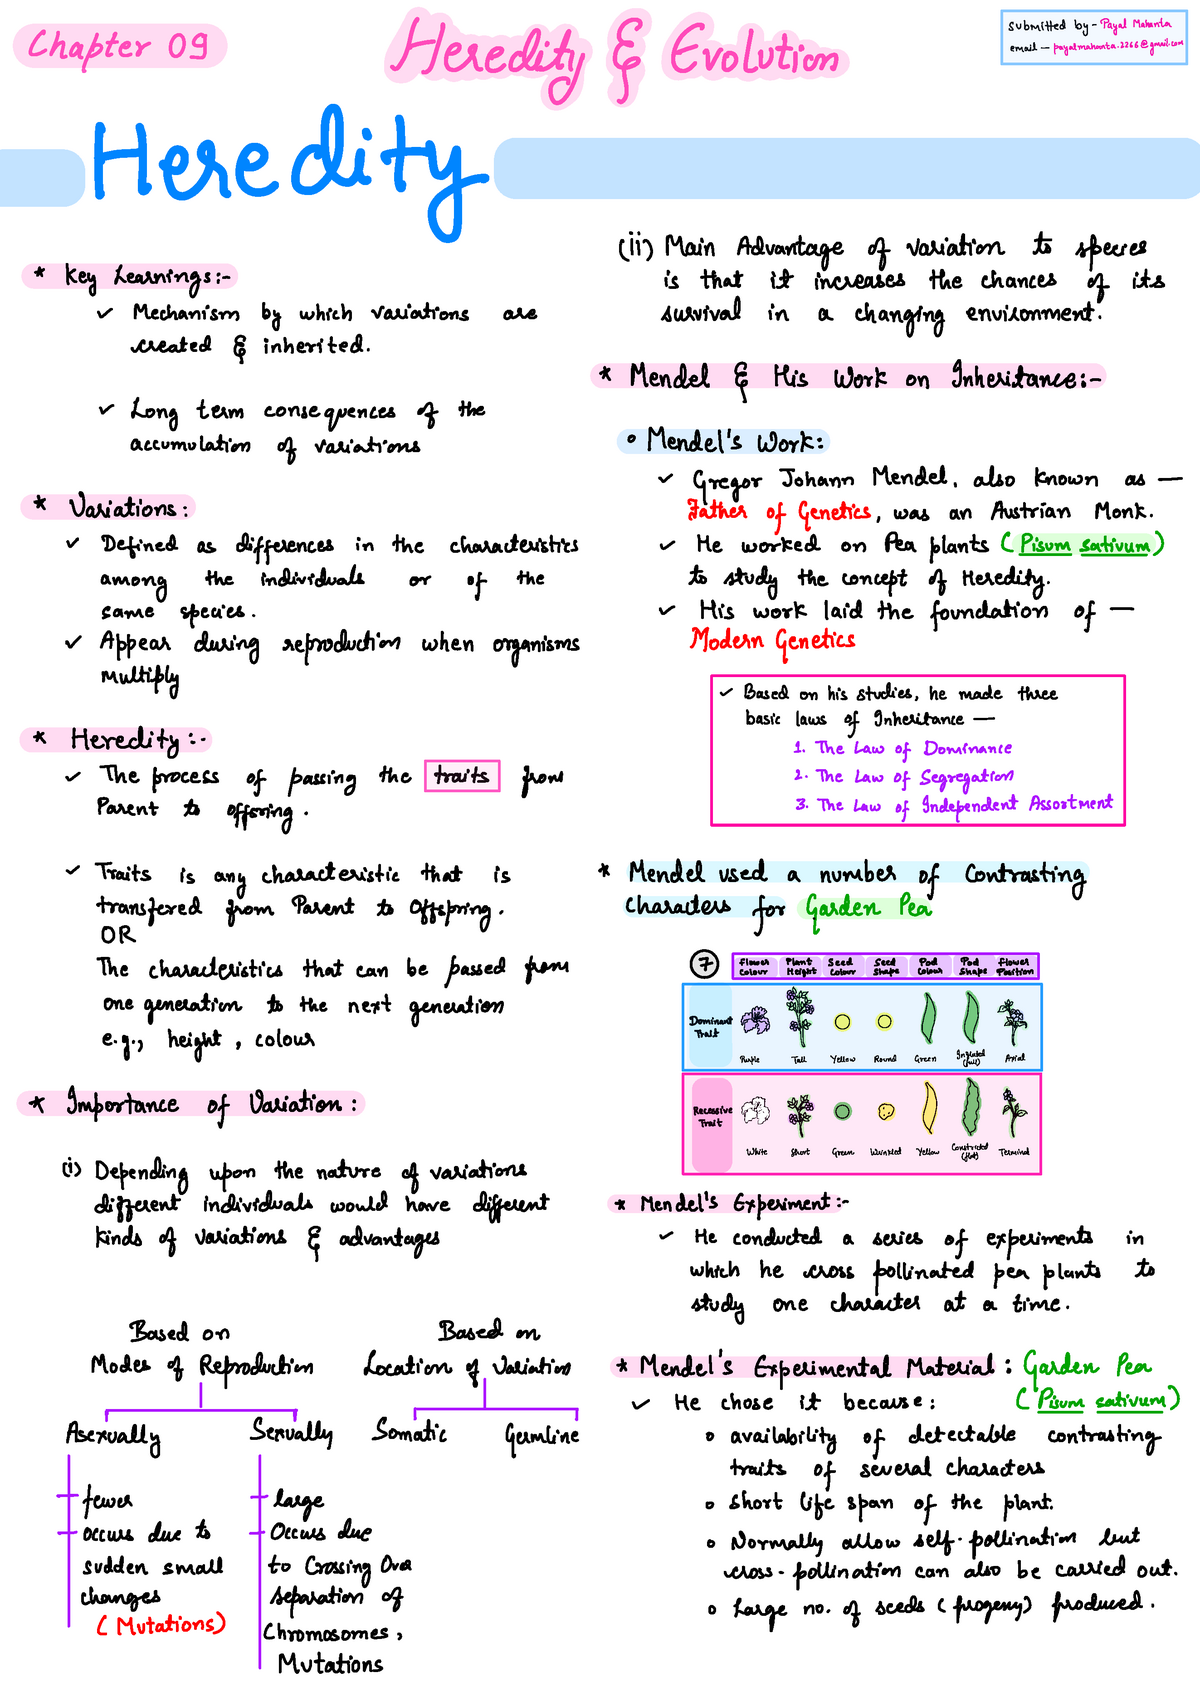 Chapter 09
Heredity & Evolution
Submitted by - Payal Mahanta
email - payalmahanta.2266@gmail.com
Heredity
* Key Learnings:-
✓ Mechanism by which variations are
created & inherited.
✓ Long term consequences of the
accumulation of variations
* Variations:
✓ Defined as differences in the characteristics
among the individuals or of the
same species.
✓ Appear during reproduction when organisms
multiply
* Heredity:-
✓ The process of passing the traits from
Parent to offsring.
✓ Traits is any characteristic that is
transfered from Parent to Offspring.
OR
The characteristics that can be passed from
one generation to the next generation
e.g., height, colour
* Importance of Variation:
(i) Depending upon the nature of variations
different individuals would have different
kinds of variations & advantages
Based on
Modes of Reproduction
Asexually
fewer
occurs due to
sudden small
changes
(Mutations)
Sexually
large
Occurs due
to Crossing Over
separation of
Chromosomes,
Mutations
Based on
Location of Variation
Somatic
Germline
(ii) Main Advantage of variation to species
is that it increases the chances of its
survival in a changing environment.
* Mendel & His Work on Inheritance:-
• Mendel's Work:
✓ Gregor Johann Mendel, also known as —
Father of Genetics, was an Austrian Monk.
✓ He worked on Pea plants (Pisum sativum)
to study the concept of Heredity.
✓ His work laid the foundation of —
Modern Genetics
✓ Based on his studies, he made three
basic laws of Inheritance —
1. The Law of Dominance
2. The Law of Segregation
3. The Law of Independent Assortment
* Mendel used a number of Contrasting
Characters for Garden Pea
7
Flower Colour
Plant Height
Seed Colour
Seed Shape
Pod Colour
Pod Shape
Flower Position
Dominant Trait
Purple
Tall
Yellow
Round
Green
Inflated (full)
Axial
Recessive Trait
White
Short
Green
Wrinkled
Yellow
Constricted (flat)
Terminal
* Mendel's Experiment:-
✓ He conducted a series of experiments in
which he cross pollinated pea plants to
study one character at a time.
* Mendel's Experimental Material: Garden Pea
(Pisum sativum)
✓ He chose it because:
o availability of detectable contrasting
traits of several characters
o Short life span of the plant.
o Normally allow self-pollination but
cross-pollination can also be carried out.
o Large no. of seeds (progeny) produced.